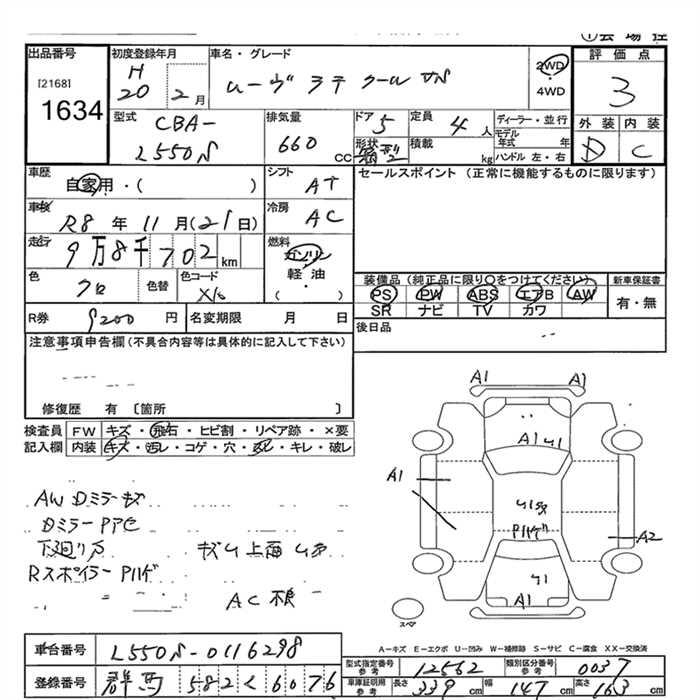 出品番号
[2168]
1634
初度登録年月
H 20 2月
車名・グレード
ムーヴ ラテ クール VS
2WD
・
4WD
評価点
3
型式
CBA-
L550S
排気量
660 CC
ドア
5
形状
箱型
定員
4 人
積載
kg
ディーラー・並行
モデル年式 年
ハンドル 左・右
外装 内装
D C
車歴
自家用・( )
シフト
AT
セールスポイント (正常に機能するものに限ります)
車検
R8年11月(21日)
冷房
AC
走行
9万8千702km
燃料
ガソリン
軽・油
( )
色
クロ
色替
色コード
X/6
装備品 (純正品に限り○をつけてください)
PS PW ABS エアB AW
SR ナビ TV カワ
新車保証書
有・無
R券
9200 円
名変期限 月 日
後日品
注意事項申告欄(不具合内容等は具体的に記入して下さい)
修復歴 有 〔箇所 〕
検査員 FW キズ・飛石・ヒビ割・リペア跡・×要
記入欄 内装 キズ・汚レ・コゲ・穴・スレ・キレ・破レ
AW Dミラーキズ
DミラーPアセ
下廻りサ
Rスポイラー Pハゲ
AC不良
A1 A1
A1 U1
A1
U1
Pハゲ
A2
U1
A1
スペア
A-キズ E-エクボ U-凹み W-補修跡 S-サビ C-腐食 XX-交換済
車台番号
L550S-0116298
型式指定番号 参考
12562
類別区分番号 参考
0037
登録番号
群馬 582 く 6076
車庫証明用 参考
長さ 339 cm 幅 147 cm 高さ 163 cm